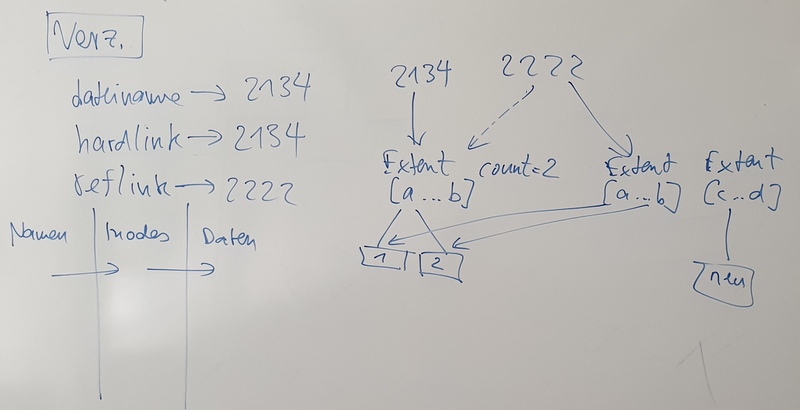 Verz.
dateiname → 2134
hardlink → 2134
reflink → 2222
Namen | Inodes | Daten
2134 2222
Extent count=2 Extent Extent
[a...b] [a...b] [c...d]
1 2 neu